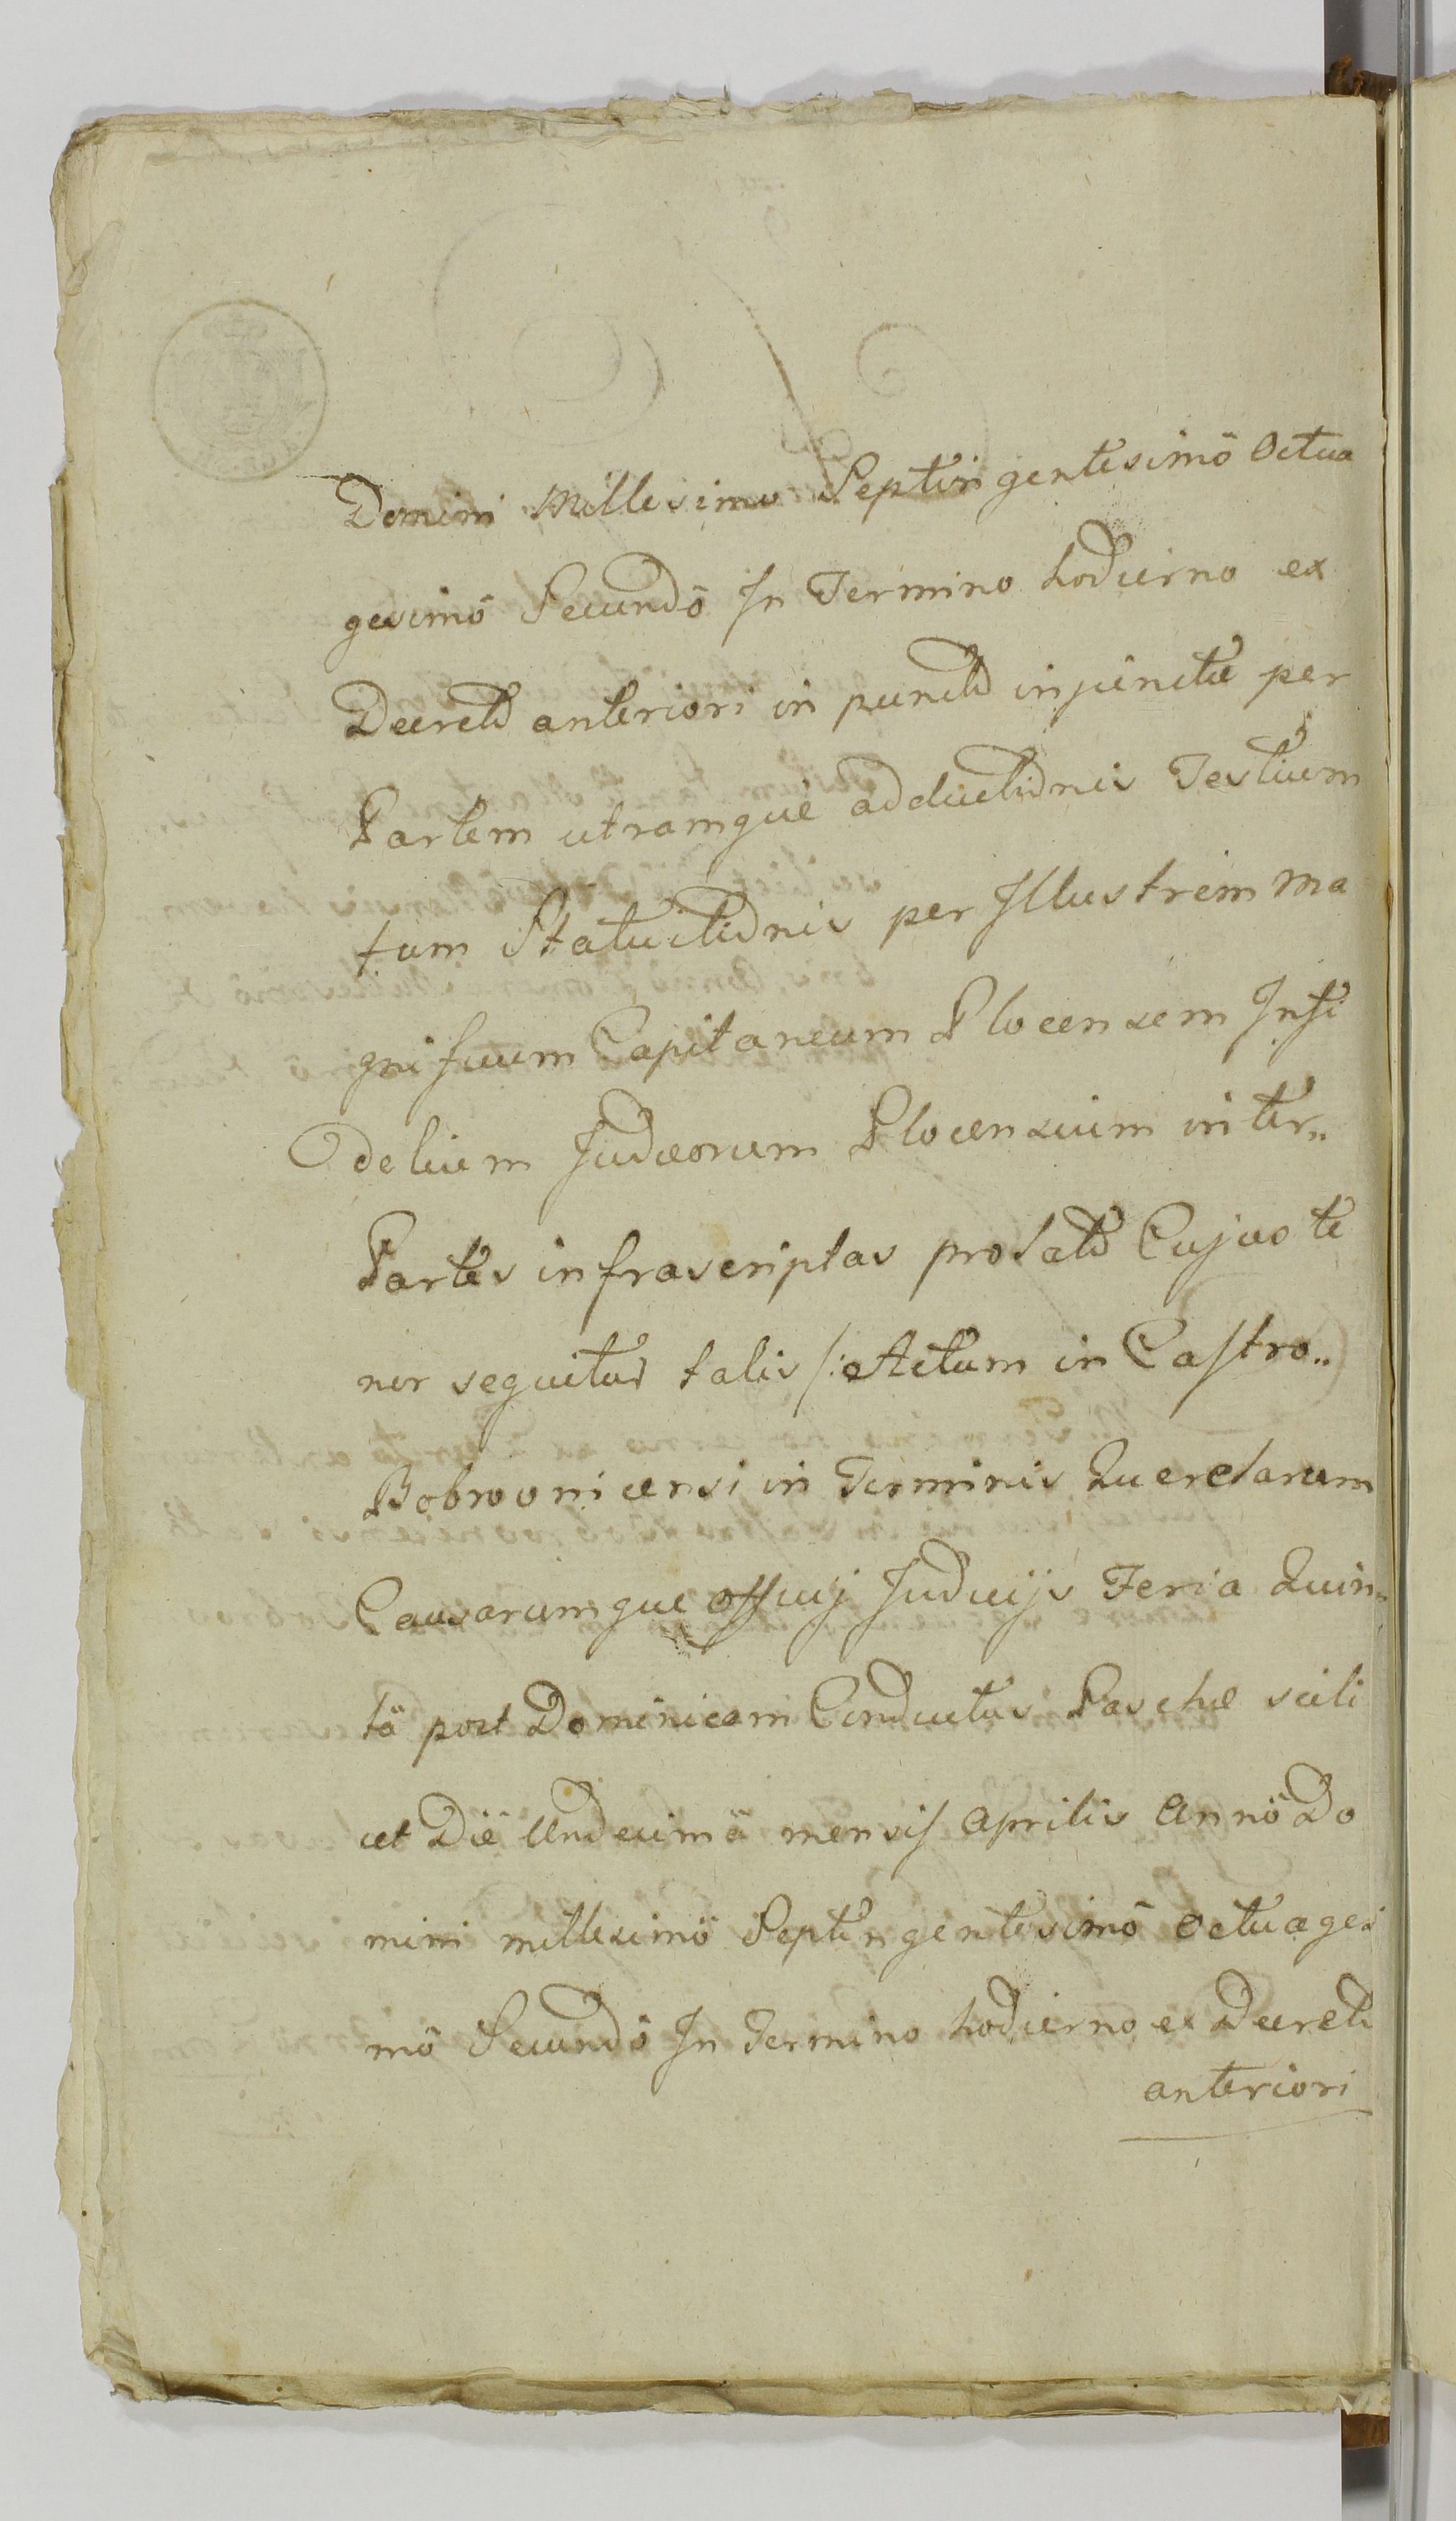 Domini Millesimo Septingentesimö Octua
gesimö Secundö In Termino hodierno ex
Decreto anteriori in puncto injunctæ per
Partem utramque adductionis Testium
tum Statuitionis per Illustrem Ma
gnificum Capitaneum Plocensem Infi
delium Judæorum Plocensium inter„
Partes infrascriptas prolato Cujus te
nor sequitur talis /: Actum in Castro„
Bobrovnicensi in Terminis Querelarum
Causarumque officij Judicijs Feria Quin„
tä post Dominicam Conductus Paschæ scili
cet Dië Undecimä mensis Aprilis Annö Do
mini millesimö Septingentesimö Octuagesi
mö Secundö In Termino hodierno ex Decreto
anteriori